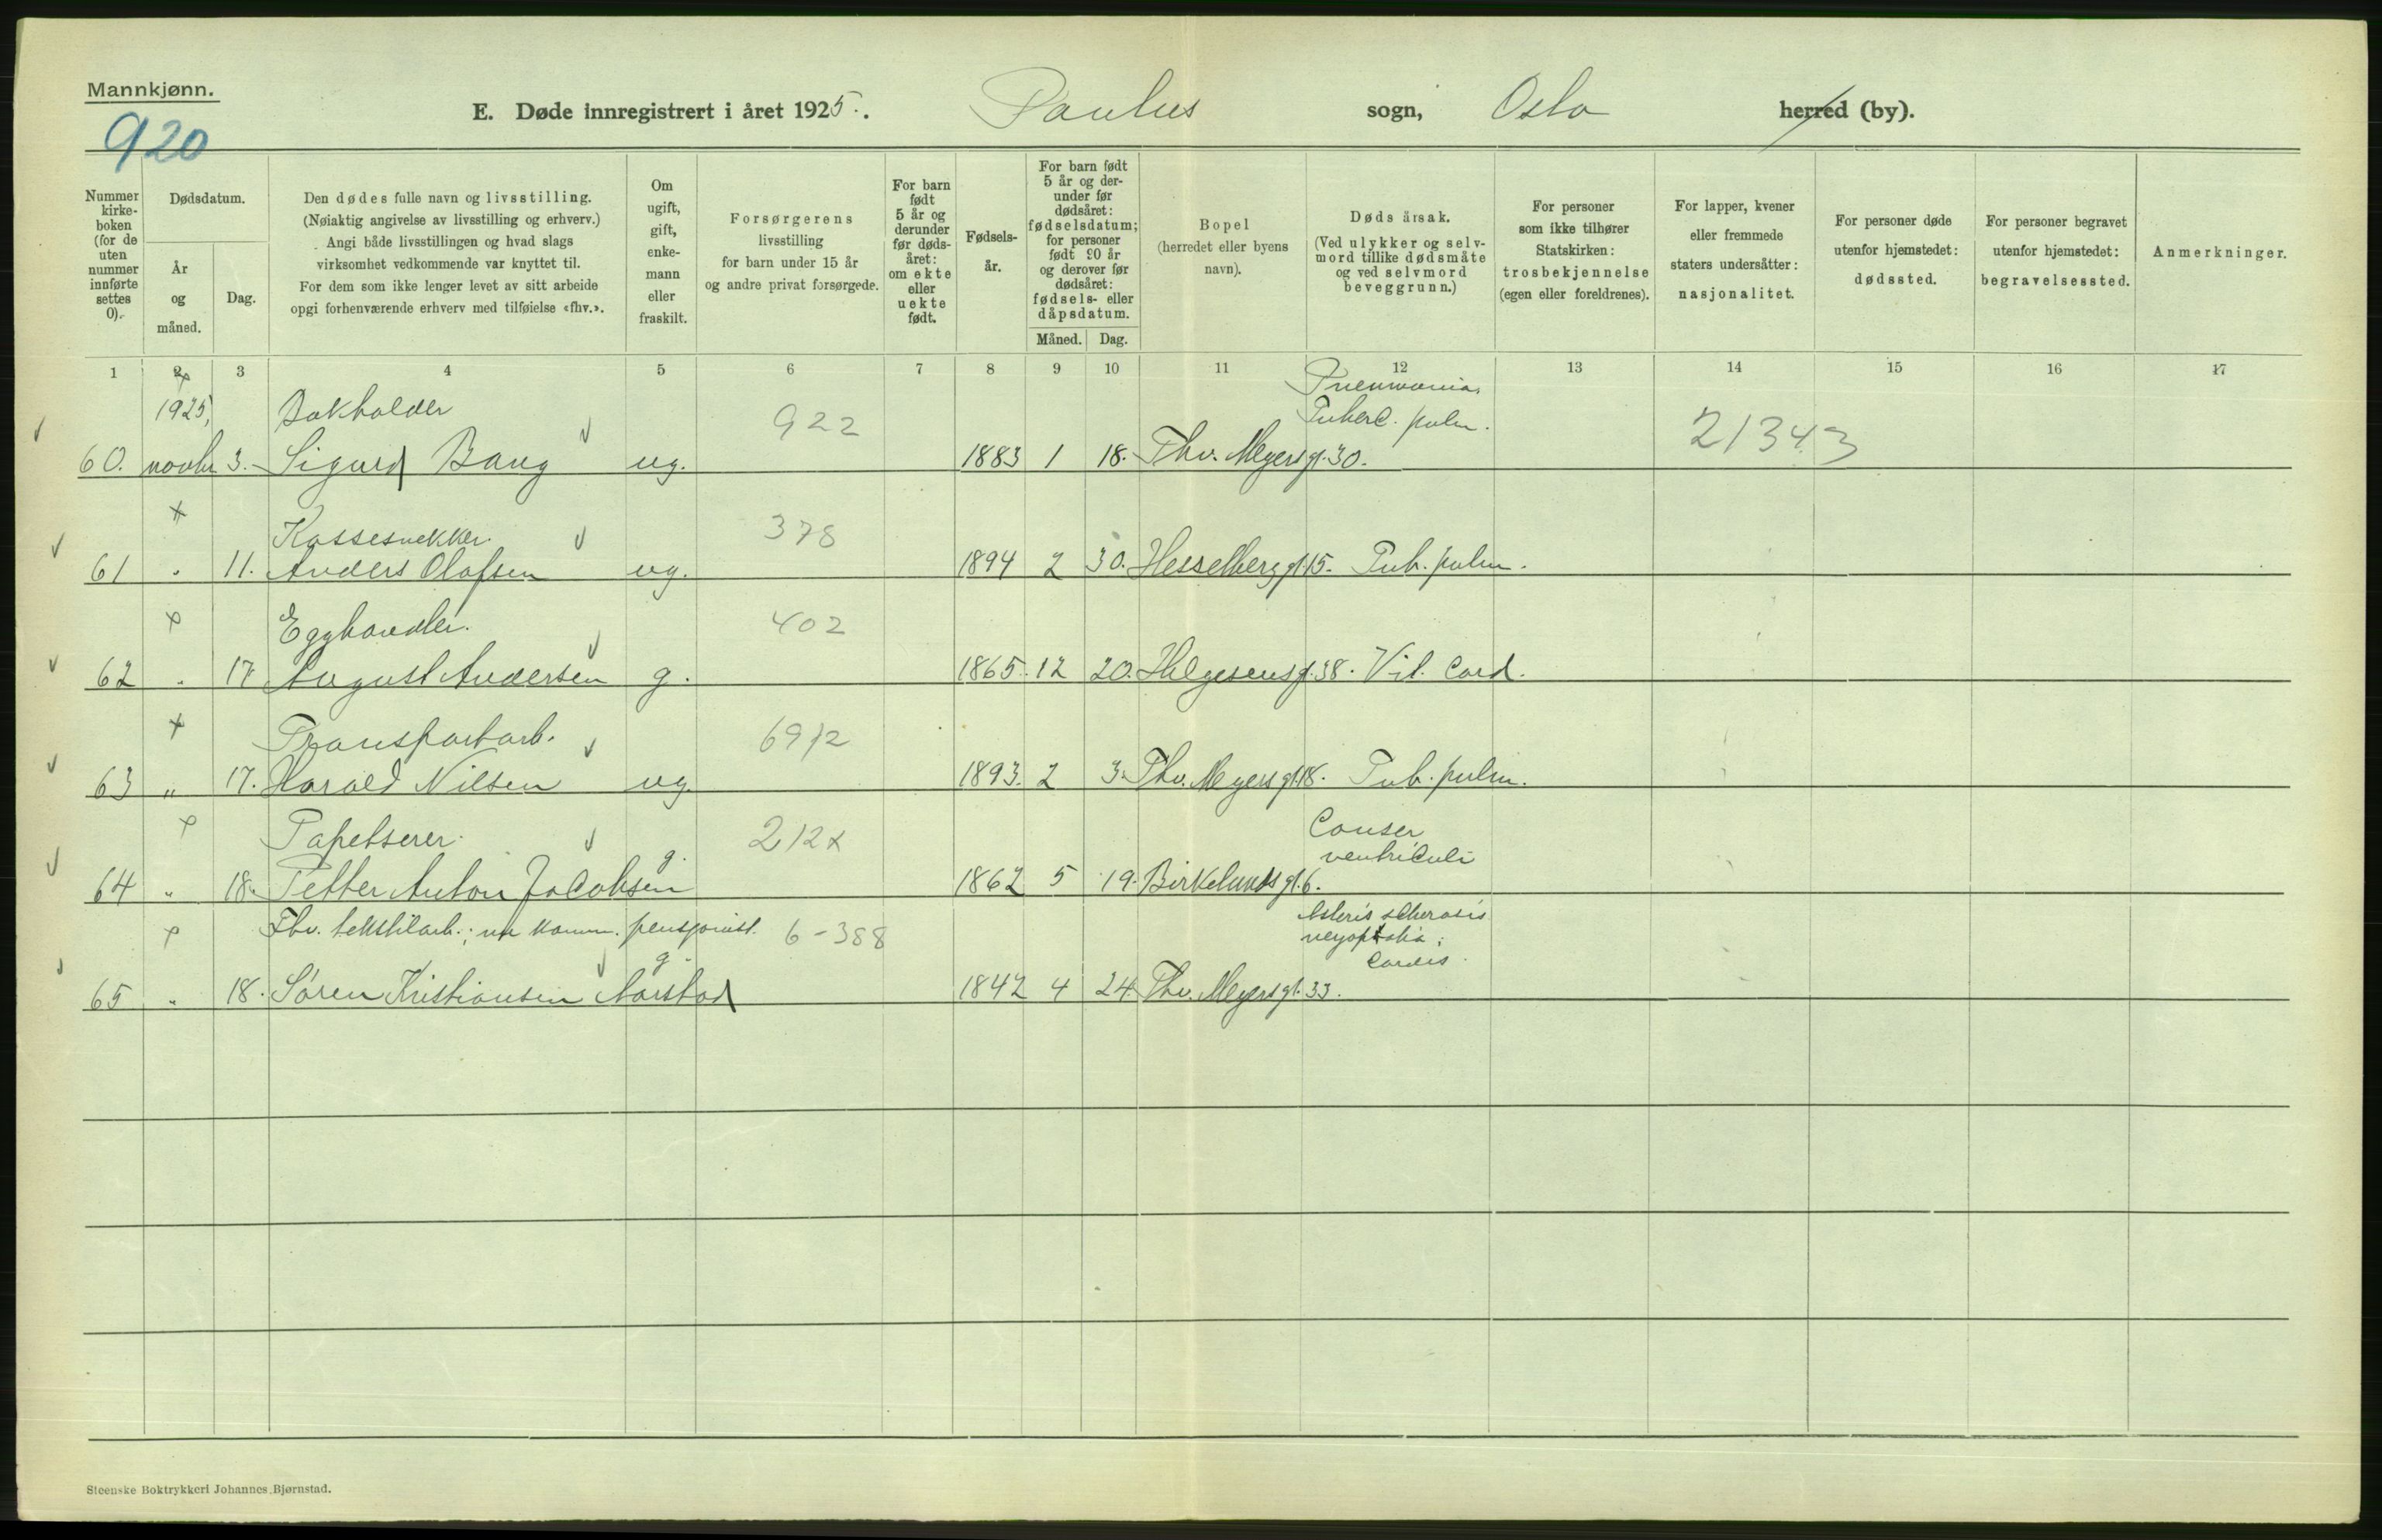 Mannkjønn.
920
E. Døde innregistrert i året 1925. Paulus sogn, Oslo herred (by).
Nummer kirke-boken (for de uten nummer innførte settes 0).
Dødsdatum.
År og måned.
Dag.
Den dødes fulle navn og livsstilling.
(Nøiaktig angivelse av livsstilling og erhverv.)
Angi både livsstillingen og hvad slags
virksomhet vedkommende var knyttet til.
For dem som ikke lenger levet av sitt arbeide
opgi forhenværende erhverv med tilføielse «fhv.».
Om ugift, gift, enke-mann eller fraskilt.
Forsørgerens
livsstilling
for barn under 15 år
og andre privat forsørgede.
For barn født 5 år og derunder før døds-året: om ekte eller uekte født.
Fødsels-år.
For barn født 5 år og der-under før dødsåret: fødselsdatum; for personer født 90 år og derover før dødsåret: fødsels- eller dåpsdatum.
Måned. Dag.
Bopel
(herredet eller byens navn).
Døds årsak.
(Ved ulykker og selv-mord tillike dødsmåte og ved selvmord beveggrunn.)
For personer som ikke tilhører Statskirken: trosbekjennelse (egen eller foreldrenes).
For lapper, kvener eller fremmede staters undersåtter: nasjonalitet.
For personer døde utenfor hjemstedet: dødssted.
For personer begravet utenfor hjemstedet: begravelsessted.
Anmerkninger.
1 2 3 4 5 6 7 8 9 10 11 12 13 14 15 16 17
1925, Bokholder 922 Pneumonia, Tuberc. pulm. 21343
60. novbr 3. Sigurd Bang ug. 1883 1 18. Thv. Meyersgt. 30.
Kassesnekker. 378
61 " 11. Anders Olafsen ug. 1894 2 30. Hesselberggt. 15. Tub. pulm.
Egghandler. 402
62 " 17 August Andersen g. 1865. 12 20. Helgesensgt. 38. Vit. Cord.
Transportarb. 6912
63 " 17. Harald Nilsen ug. 1893. 2 3. Thv. Meyersgt. 18. Tub. pulm.
Tapetserer. 212x Canser ventriculi
64 " 18. Petter Anton Jacobsen g. 1862 5 19. Birkelundsgt. 6.
Fhv. tekstilarb.; nu komm. pensjonist. 6-388
65 " 18. Søren Kristiansen Aarstad g. 1842 4 24. Thv. Meyersgt. 33. Cordis.
Steenske Boktrykkeri Johannes Bjørnstad.